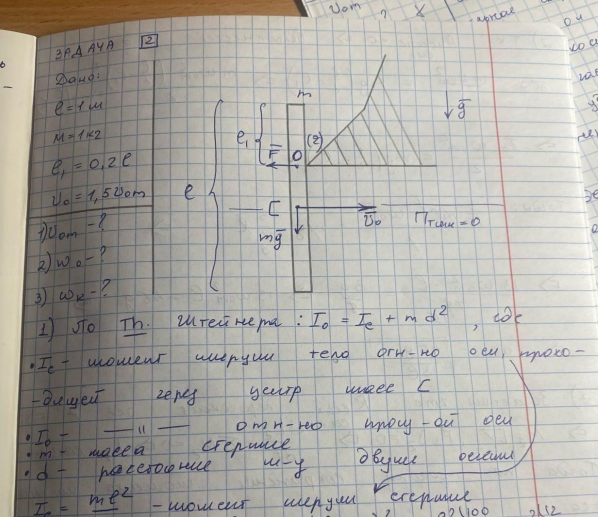 ЗАДАЧА 2
Дано:
l = 1 м
m = 1 кг
l₁ = 0,2 l
v₀ = 1,5 v₀m
1) v₀m - ?
2) ω₀ - ?
3) ωк - ?
m
l₁
F
O
(2)
g
l
C
mg
v₀
Птяж = 0
1) По Th. Штейнера : I₀ = Ic + m d² , где
• Ic - момент инерции тела отн-но оси, прохо-
-дящей через центр масс C
• I₀ - —— " —— отн-но произ-ой оси
• m - масса стержня
• d - расстояние м-у двумя осями
Ic = ml² - момент инерции стержня